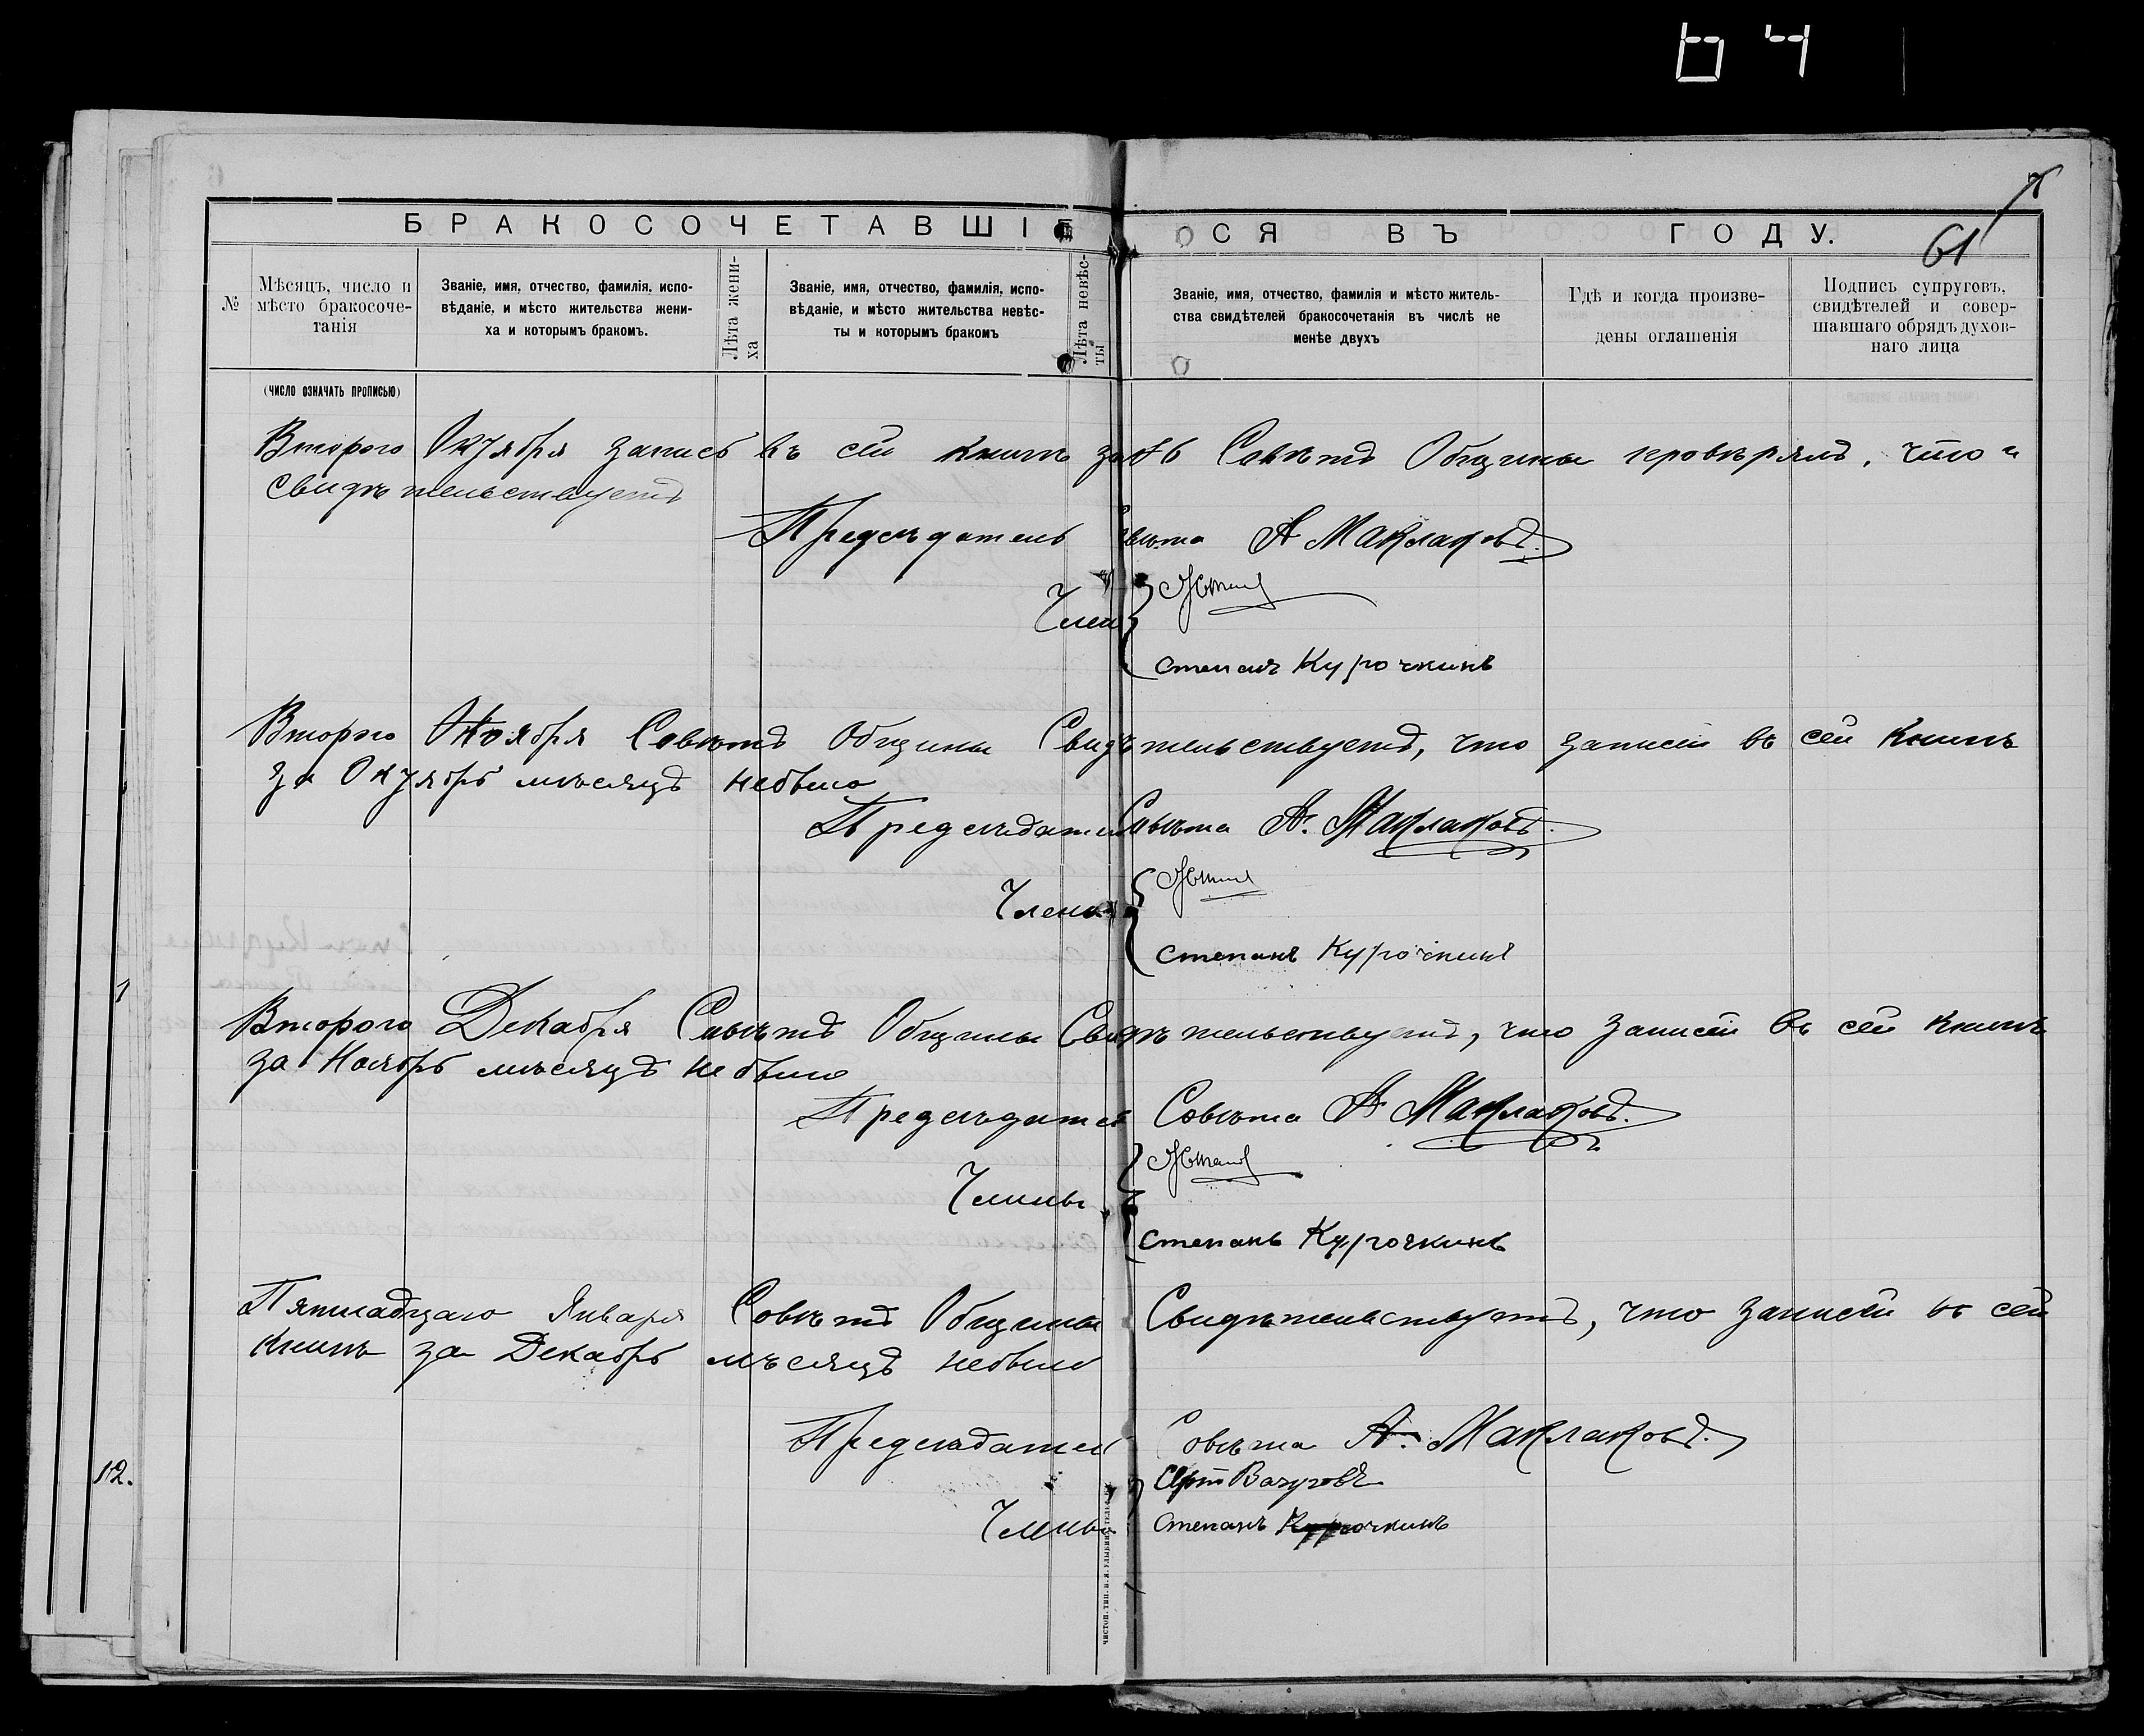 7
61
БРАКОСОЧЕТАВШІЕСЯ ВЪ ГОДУ.
№
Мѣсяцъ, число и мѣсто бракосоче-
танія
(ЧИСЛО ОЗНАЧАТЬ ПРОПИСЬЮ)
Званіе, имя, отчество, фамилія, испо-
вѣданіе, и мѣсто жительства жени-
ха и которымъ бракомъ.
Лѣта жени-
ха
Званіе, имя, отчество, фамилія, испо-
вѣданіе, и мѣсто жительства невѣс-
ты и которымъ бракомъ
Лѣта невѣс-
ты
Званіе, имя, отчество, фамилія и мѣсто житель-
ства свидѣтелей бракосочетанія въ числѣ не
менѣе двухъ
Гдѣ и когда произве-
дены оглашенія
Подпись супруговъ,
свидѣтелей и совер-
шавшаго обрядъ духов-
наго лица
Второго Октября запись въ сей книгѣ Совѣтъ Общины провѣрялъ, что и
свидѣтельствуетъ
Предсѣдатель Совѣта А Маклаковъ.
Члены
Степанъ Курочкинъ
Второго Ноября Совѣтъ Общины Свидѣтельствуетъ, что записей въ сей книгѣ
за Октябрь мѣсяцъ небыло
Предсѣдатель Совѣта А. Маклаковъ.
Члены
Степанъ Курочкинъ
Второго Декабря Совѣтъ Общины Свидѣтельствуетъ, что записей въ сей книгѣ
за Ноябрь мѣсяцъ небыло
Предсѣдатель Совѣта А Маклаковъ.
Члены
Степанъ Курочкинъ
Пятнадцаго Января Совѣтъ Общины Свидѣтельствуетъ, что записей въ сей
книгѣ за Декабрь мѣсяцъ небыло
Предсѣдатель Совѣта А. Маклаковъ.
Члены
Степанъ Курочкинъ
1
12.